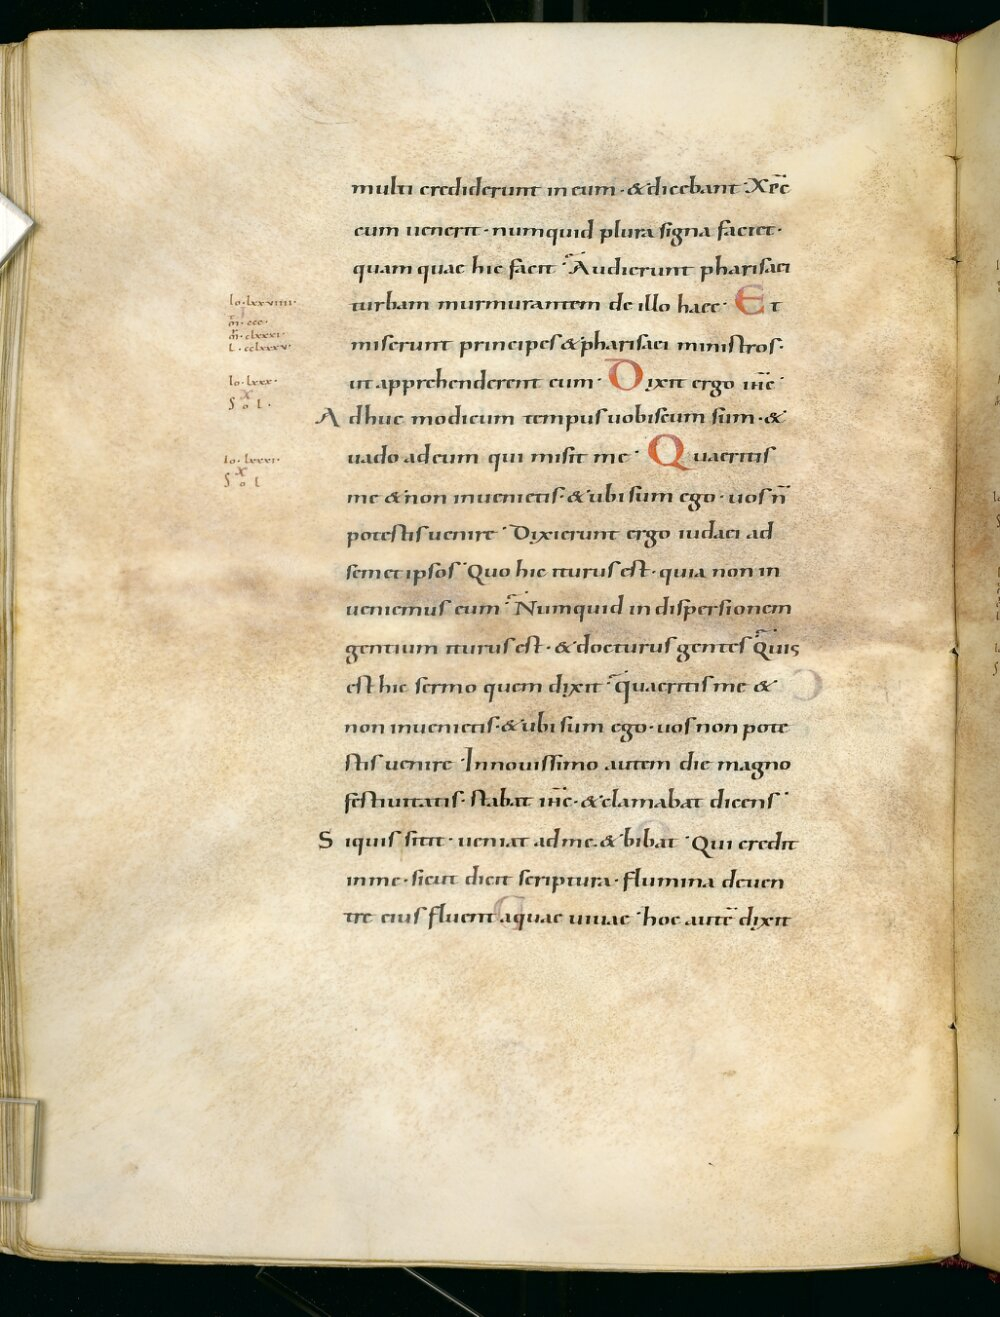 multi crediderunt in eum · & dicebant · Xp̄c
cum uenerit · numquid plura signa faciet ·
quam quae hic facit · Audierunt pharisaei
turbam murmurantem de illo haec · Et
io · lxxviiii ·
m̄ · ccc ·
m̄ · clxxxi ·
l · cclxxxv ·
miserunt principes & pharisaei ministros ·
ut apprehenderent eum · Dixit ergo ih̄c ·
io · lxxx ·
S x o l ·
Adhuc modicum tempus uobiscum sum · &
uado ad eum qui misit me · Quaeritis
io · lxxxi ·
S x o l
me & non inuenietis · & ubi sum ego · uos n̄
potestis uenire · Dixierunt ergo iudaei ad
semet ipsos · Quo hic iturus est · quia non in
ueniemus eum · Numquid in dispersionem
gentium iturus est · & docturus gentes · Quis
est hic sermo quem dixit · quaeritis me &
non inuenietis · & ubi sum ego · uos non pote
stis uenire · In nouissimo autem die magno
festiuitatis · stabat ih̄c · & clamabat dicens ·
Siquis sitit · ueniat ad me · & bibat · Qui credit
in me · sicut dicit scriptura · flumina de uen
tre eius fluent aquae uiuae · hoc autē dixit